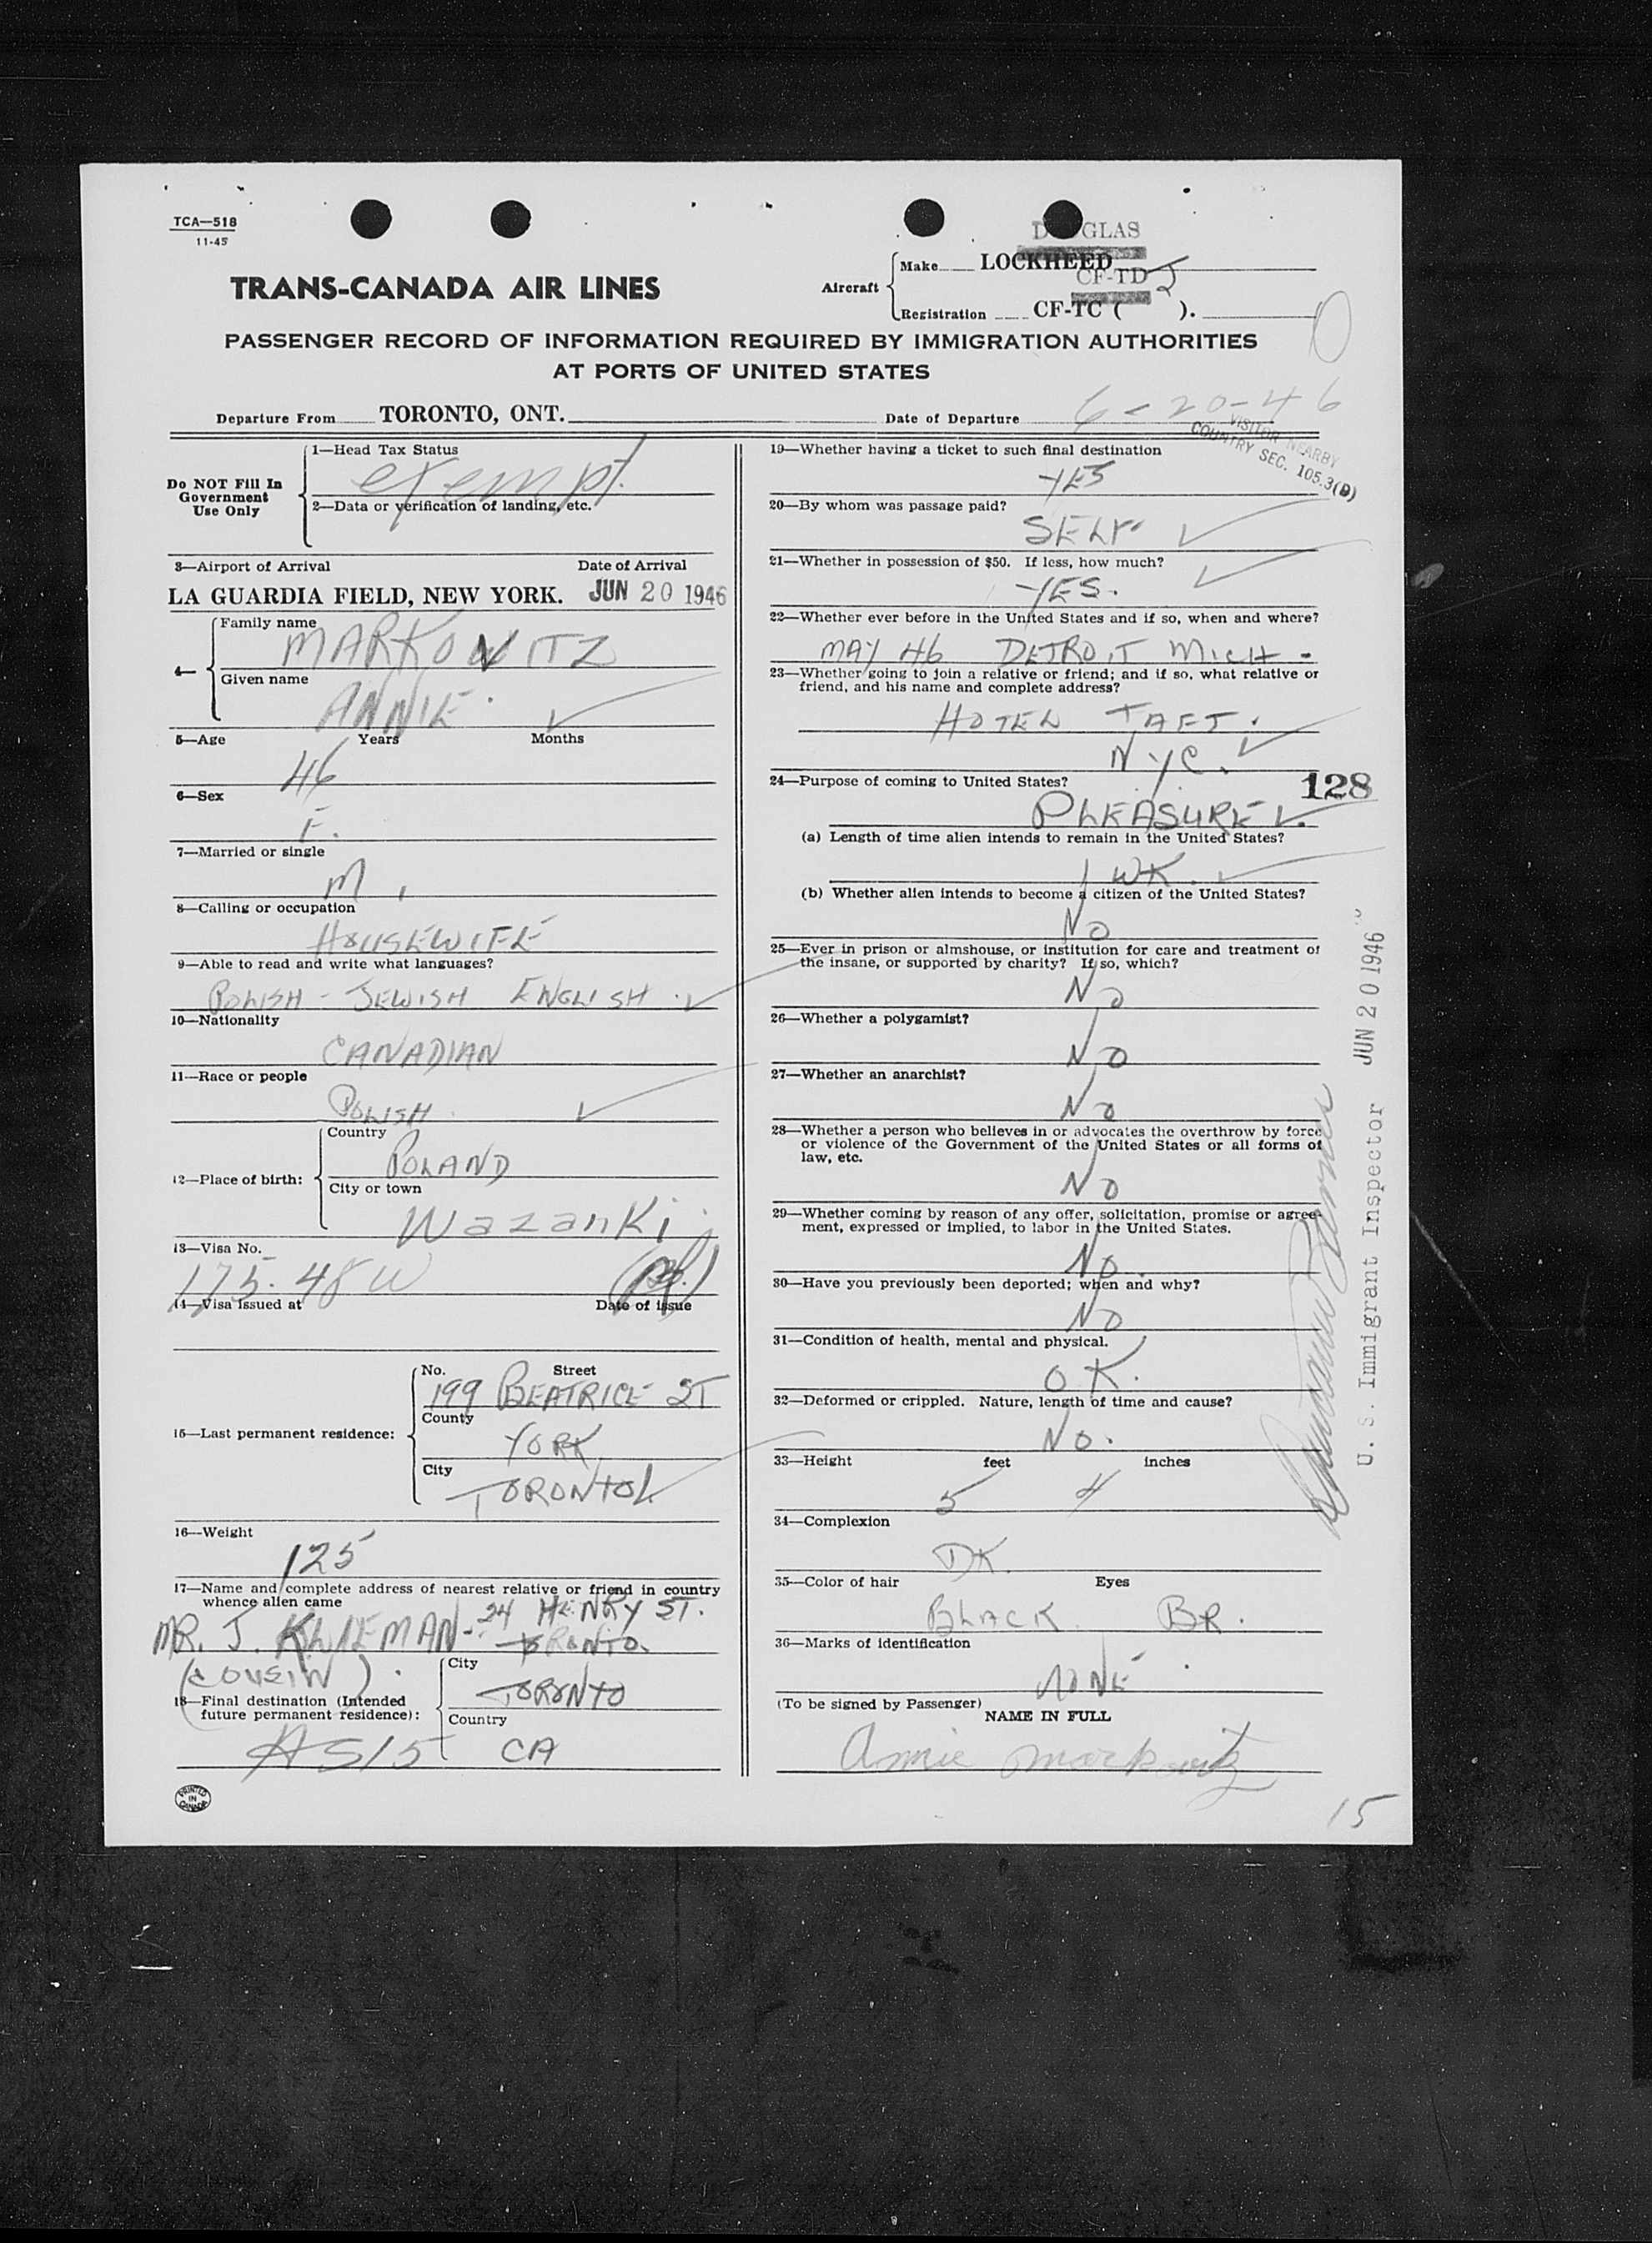 TCA—518
11-45
DOUGLAS
Make LOCKHEED
CF-TD J
TRANS-CANADA AIR LINES
Aircraft
Registration CF-TC ( ).
PASSENGER RECORD OF INFORMATION REQUIRED BY IMMIGRATION AUTHORITIES
AT PORTS OF UNITED STATES
Departure From TORONTO, ONT.
Date of Departure 6-20-46
VISITOR NEARBY
COUNTRY SEC. 105.3(B)
Do NOT Fill In
Government
Use Only
1—Head Tax Status
exempt.
2—Data or verification of landing, etc.
3—Airport of Arrival Date of Arrival
LA GUARDIA FIELD, NEW YORK. JUN 20 1946
4—
Family name
MARKOWITZ
Given name
ANNIE.
5—Age Years Months
46
6—Sex
F.
7—Married or single
M.
8—Calling or occupation
HOUSEWIFE
9—Able to read and write what languages?
POLISH - JEWISH ENGLISH.
10—Nationality
CANADIAN
11—Race or people
POLISH
12—Place of birth:
Country
POLAND
City or town
Wazanki
13—Visa No.
175.48W
14—Visa issued at Date of issue
15—Last permanent residence:
No. Street
199 BEATRICE ST
County
YORK
City
TORONTO
16—Weight
125
17—Name and complete address of nearest relative or friend in country
whence alien came
MR. J. KLIEMAN - 24 HENRY ST.
TORONTO.
(COUSIN).
18—Final destination (Intended
future permanent residence):
City
TORONTO
Country
A515 CA
PRINTED
IN
CANADA
19—Whether having a ticket to such final destination
YES
20—By whom was passage paid?
SELF
21—Whether in possession of $50. If less, how much?
YES.
22—Whether ever before in the United States and if so, when and where?
MAY 46 DETROIT MICH.
23—Whether going to join a relative or friend; and if so, what relative or
friend, and his name and complete address?
HOTEL TAFT.
NYC.
24—Purpose of coming to United States?
128
PLEASURE.
(a) Length of time alien intends to remain in the United States?
1 WK.
(b) Whether alien intends to become a citizen of the United States?
No
25—Ever in prison or almshouse, or institution for care and treatment of
the insane, or supported by charity? If so, which?
No
26—Whether a polygamist?
No
27—Whether an anarchist?
No
28—Whether a person who believes in or advocates the overthrow by force
or violence of the Government of the United States or all forms of
law, etc.
No
29—Whether coming by reason of any offer, solicitation, promise or agree-
ment, expressed or implied, to labor in the United States.
No.
30—Have you previously been deported; when and why?
No
31—Condition of health, mental and physical.
O K.
32—Deformed or crippled. Nature, length of time and cause?
No.
33—Height feet inches
5 4
34—Complexion
DK.
35—Color of hair Eyes
BLACK BR.
36—Marks of identification
NONE
(To be signed by Passenger)
NAME IN FULL
Annie Markowitz
15
U. S. Immigrant Inspector JUN 20 1946